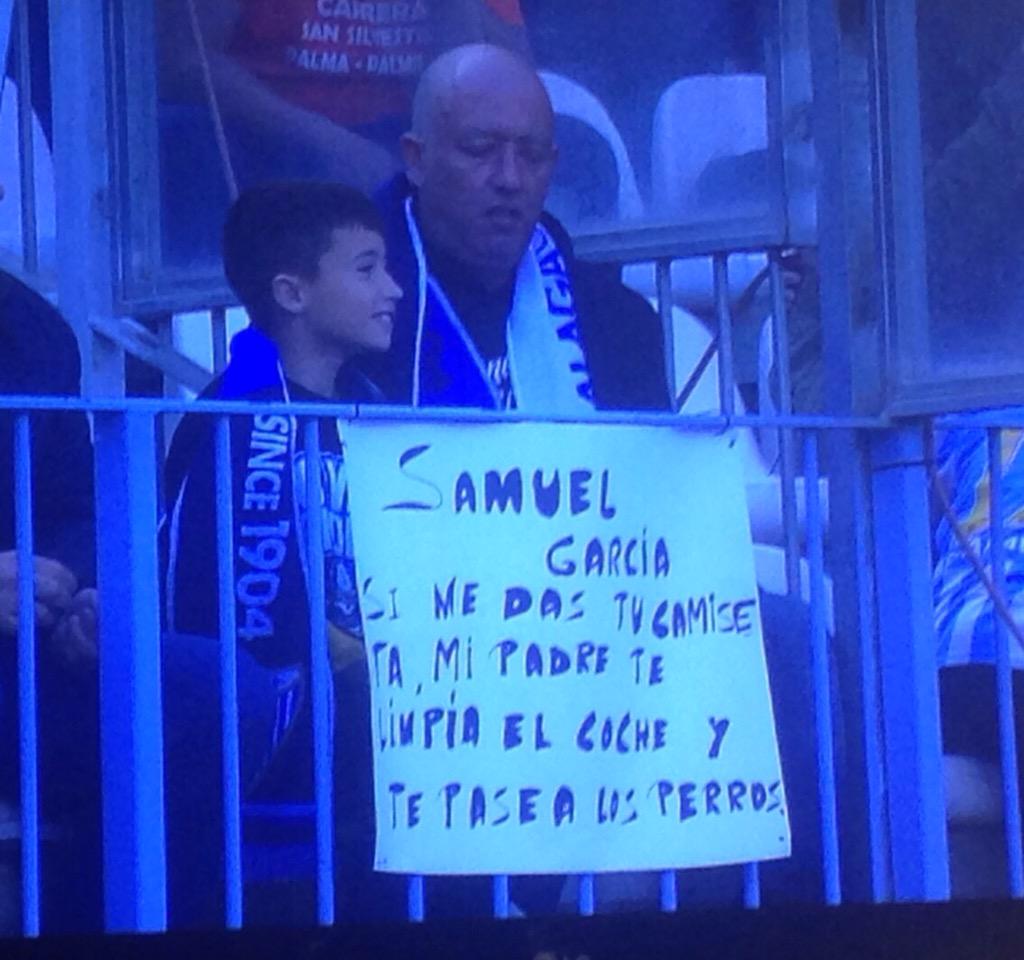 CARRERA
SAN SILVESTRE
PALMA - PALMI
MALAGA
SINCE 1904
SAMUEL
GARCÍA
SI ME DAS TU CAMISE
TA, MI PADRE TE
LIMPÍA EL COCHE Y
TE PASEA LOS PERROS.